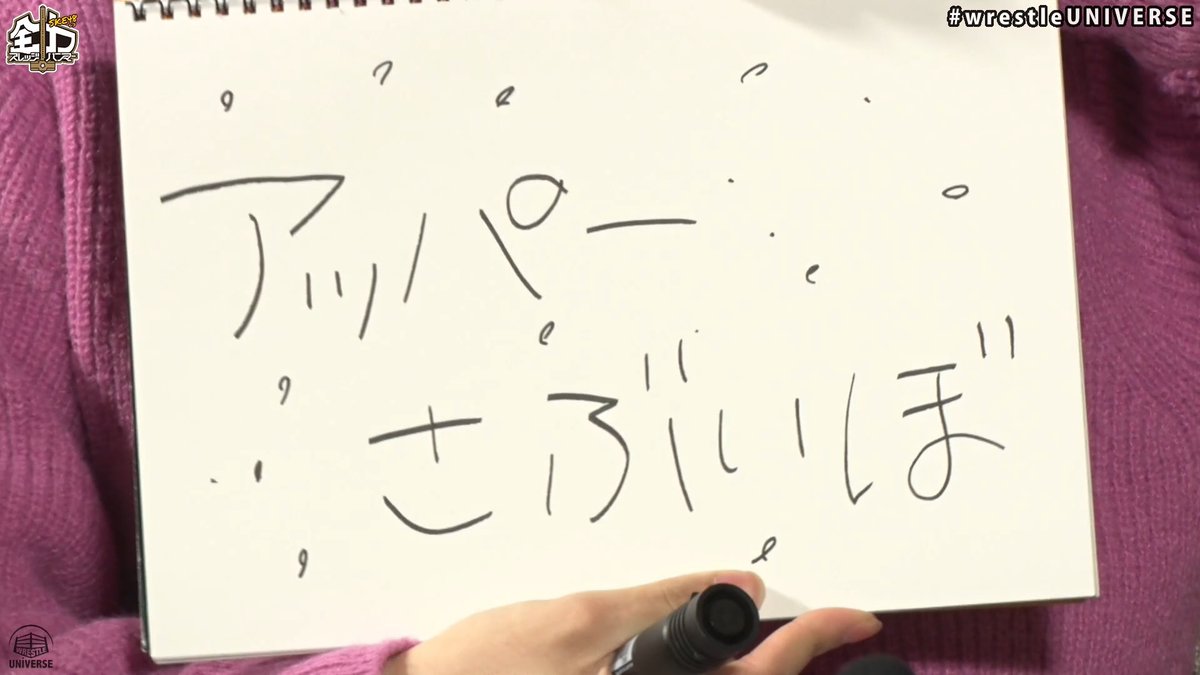 SKE48
全力
スレッジハンマー
#wrestleUNIVERSE
アッパー
さぶいぼ
WRESTLE
UNIVERSE